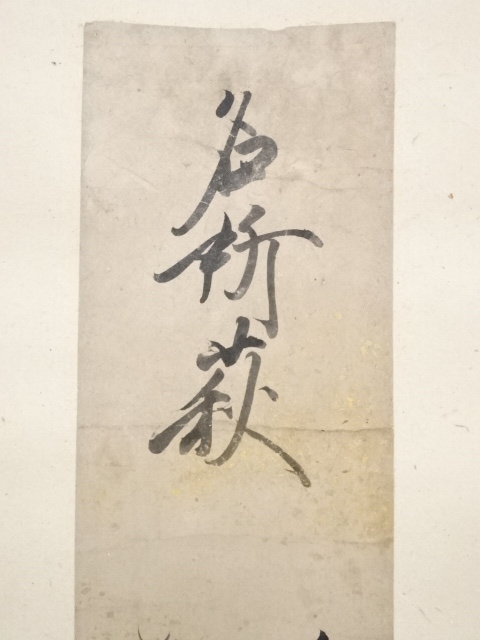 名所萩